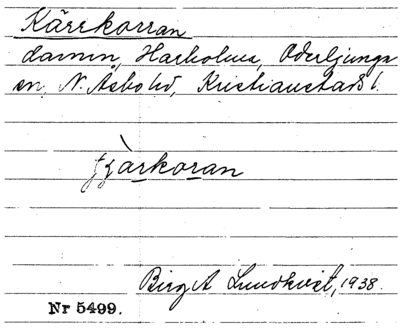 Kärrkorran
damm, Harholma, Oderljunga
sn, N. Åsbo hd, Kristianstads l.
tjàrkoran
Birgit Lundkvist, 1938.
Nr 5499.